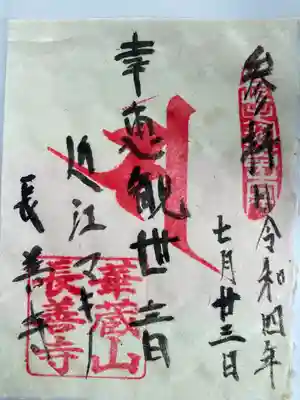 参拝日令和四年
七月廿三日
幸運観世音
近江マキノ
長善寺
華蔵山
長善寺